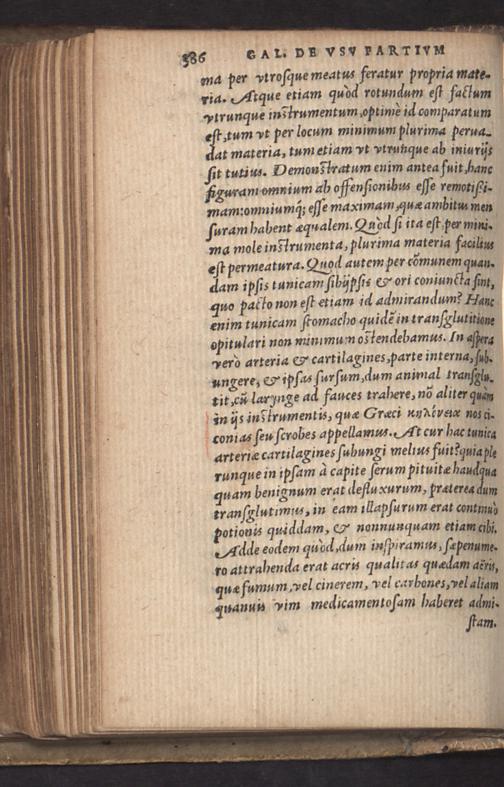 386 GAL. DE VSV PARTIVM
ma per vtrosque meatus feratur propria mate-
ria. Atque etiam quòd rotundum est factum
vtrunque instrumentum, optimè id comparatum
est, tum vt per locum minimum plurima perua-
dat materia, tum etiam vt vtrunque ab iniurijs
sit tutius. Demonstratum enim antea fuit, hanc
figuram omnium ab offensionibus esse remotißi-
mam: omniumq́; esse maximam, quæ ambitus men
suram habent æqualem. Quòd si ita est, per mini-
ma mole instrumenta, plurima materia facilius
est permeatura. Quod autem per cōmunem quan-
dam ipsis tunicam sibijpsis & ori coniuncta sint,
quo pacto non est etiam id admirandum? Hanc
enim tunicam stomacho quidē in transglutitione
opitulari non minimum ostendebamus. In aspera
verò arteria & cartilagines, parte interna, sub-
ungere, & ipsas sursum, dum animal transglu-
tit, cū larynge ad fauces trahere, nō aliter quam
in ijs instrumentis, quæ Græci κηλώνεια nos ci-
conias seu scrobes appellamus. At cur hac tunica
arteriæ cartilagines subungi melius fuit? quia ple
runque in ipsam à capite serum pituitæ haudqua
quam benignum erat defluxurum, præterea dum
transglutimus, in eam illapsurum erat continuò
potionis quiddam, & nonnunquam etiam cibi.
Adde eodem quòd, dum inspiramus, sæpenume-
ro attrahenda erat acris qualitas quædam aëris,
quæ fumum, vel cinerem, vel carbones, vel aliam
quanuis vim medicamentosam haberet admi-
stam.